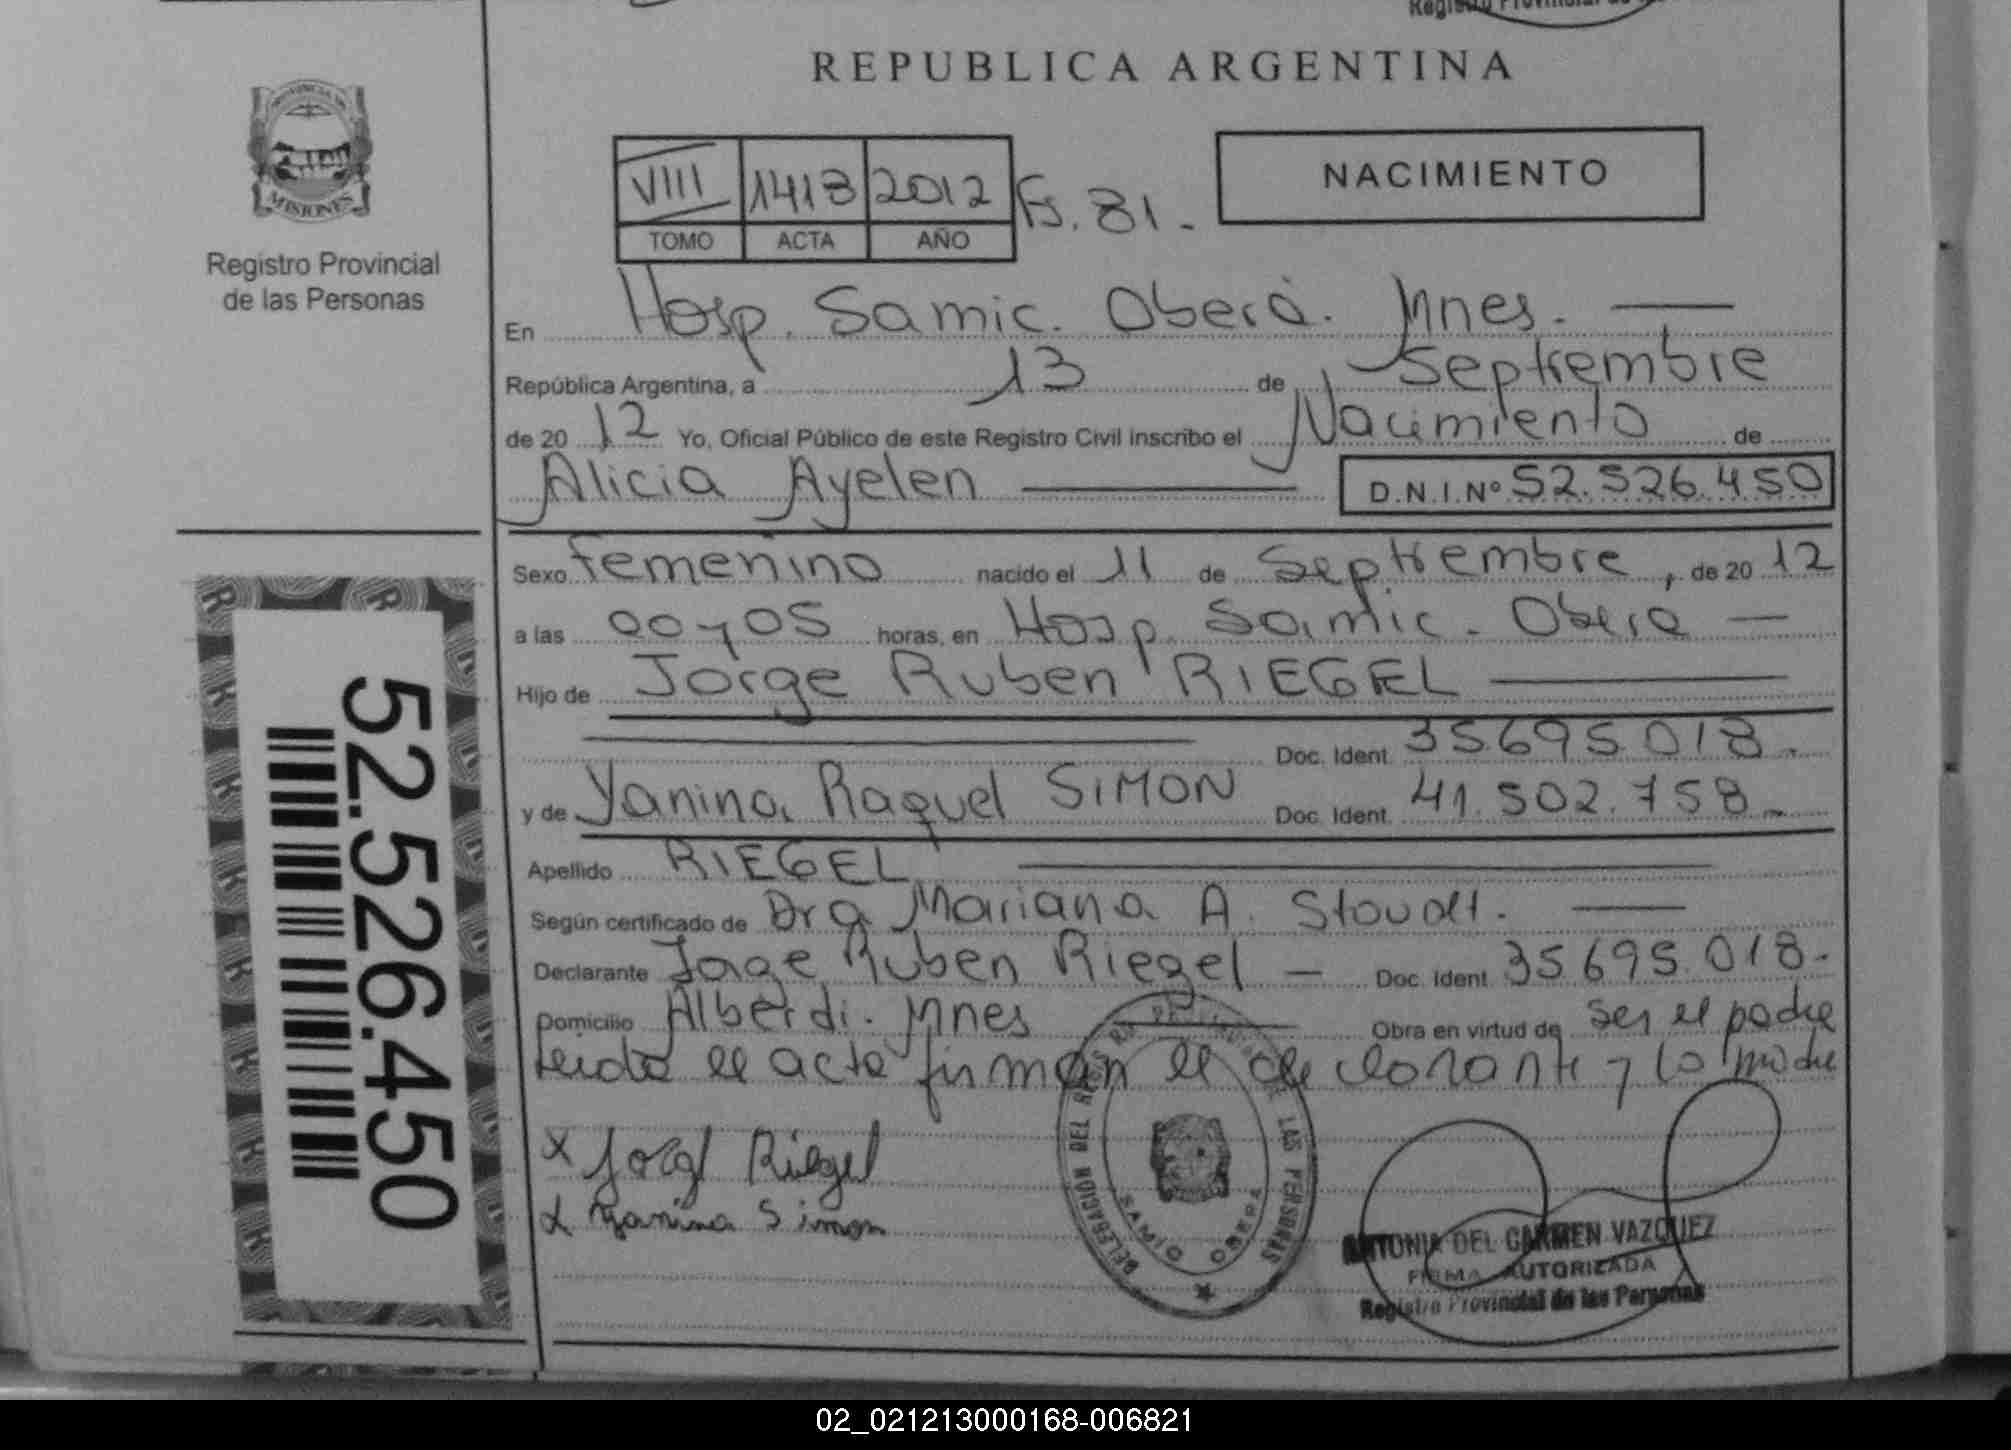 REPUBLICA ARGENTINA
PROVINCIA DE
MISIONES
Registro Provincial
de las Personas
VIII 1418 2012 Fs. 81.-
TOMO ACTA AÑO
NACIMIENTO
En Hosp. Samic. Oberá. Mnes.
República Argentina, a 13 de Septiembre
de 20 12 Yo, Oficial Público de este Registro Civil inscribo el Nacimiento de
Alicia Ayelen D.N.I.Nº 52.526.450
Sexo femenino nacido el 11 de Septiembre, de 20 12
a las 00y05 horas, en Hosp. Samic. Obera
Hijo de Jorge Ruben RIEGEL
Doc. Ident. 35.695.018.-
y de Yanina Raquel SIMON Doc. Ident. 41.502.758.-
Apellido RIEGEL
Según certificado de Dra Mariana A.
Declarante Jorge Ruben Riegel Doc. Ident. 35.695.018.-
Domicilio Alberdi. Mnes Obra en virtud de ser el padre
Leida el acta firman el declarante y la madre
x Jorge Riegel
x Yanina Simon
DELEGACIÓN DEL REGISTRO PROVINCIAL DE LAS PERSONAS
OBERA
ANTONIA DEL CARMEN VAZQUEZ
FIRMA AUTORIZADA
Registro Provincial de las Personas
52.526.450
02_021213000168-006821